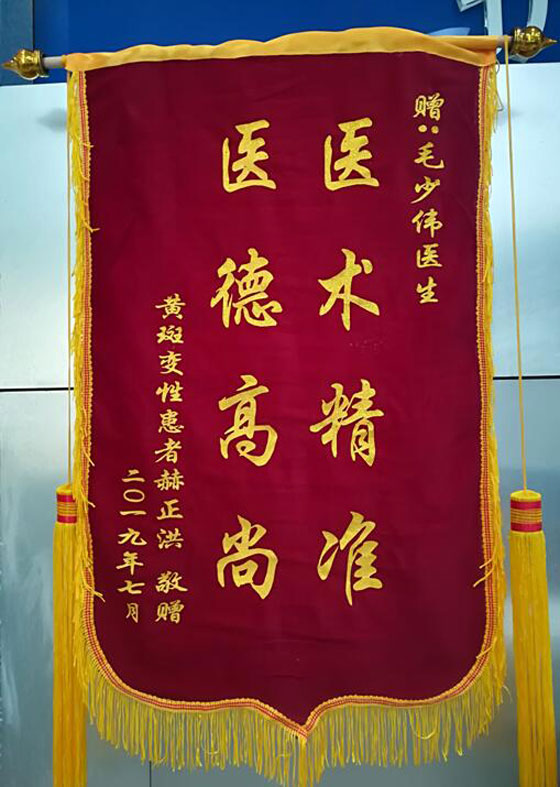 赠：毛少伟医生
医术精准
医德高尚
黄斑变性患者赫正洪 敬赠
二〇一九年七月